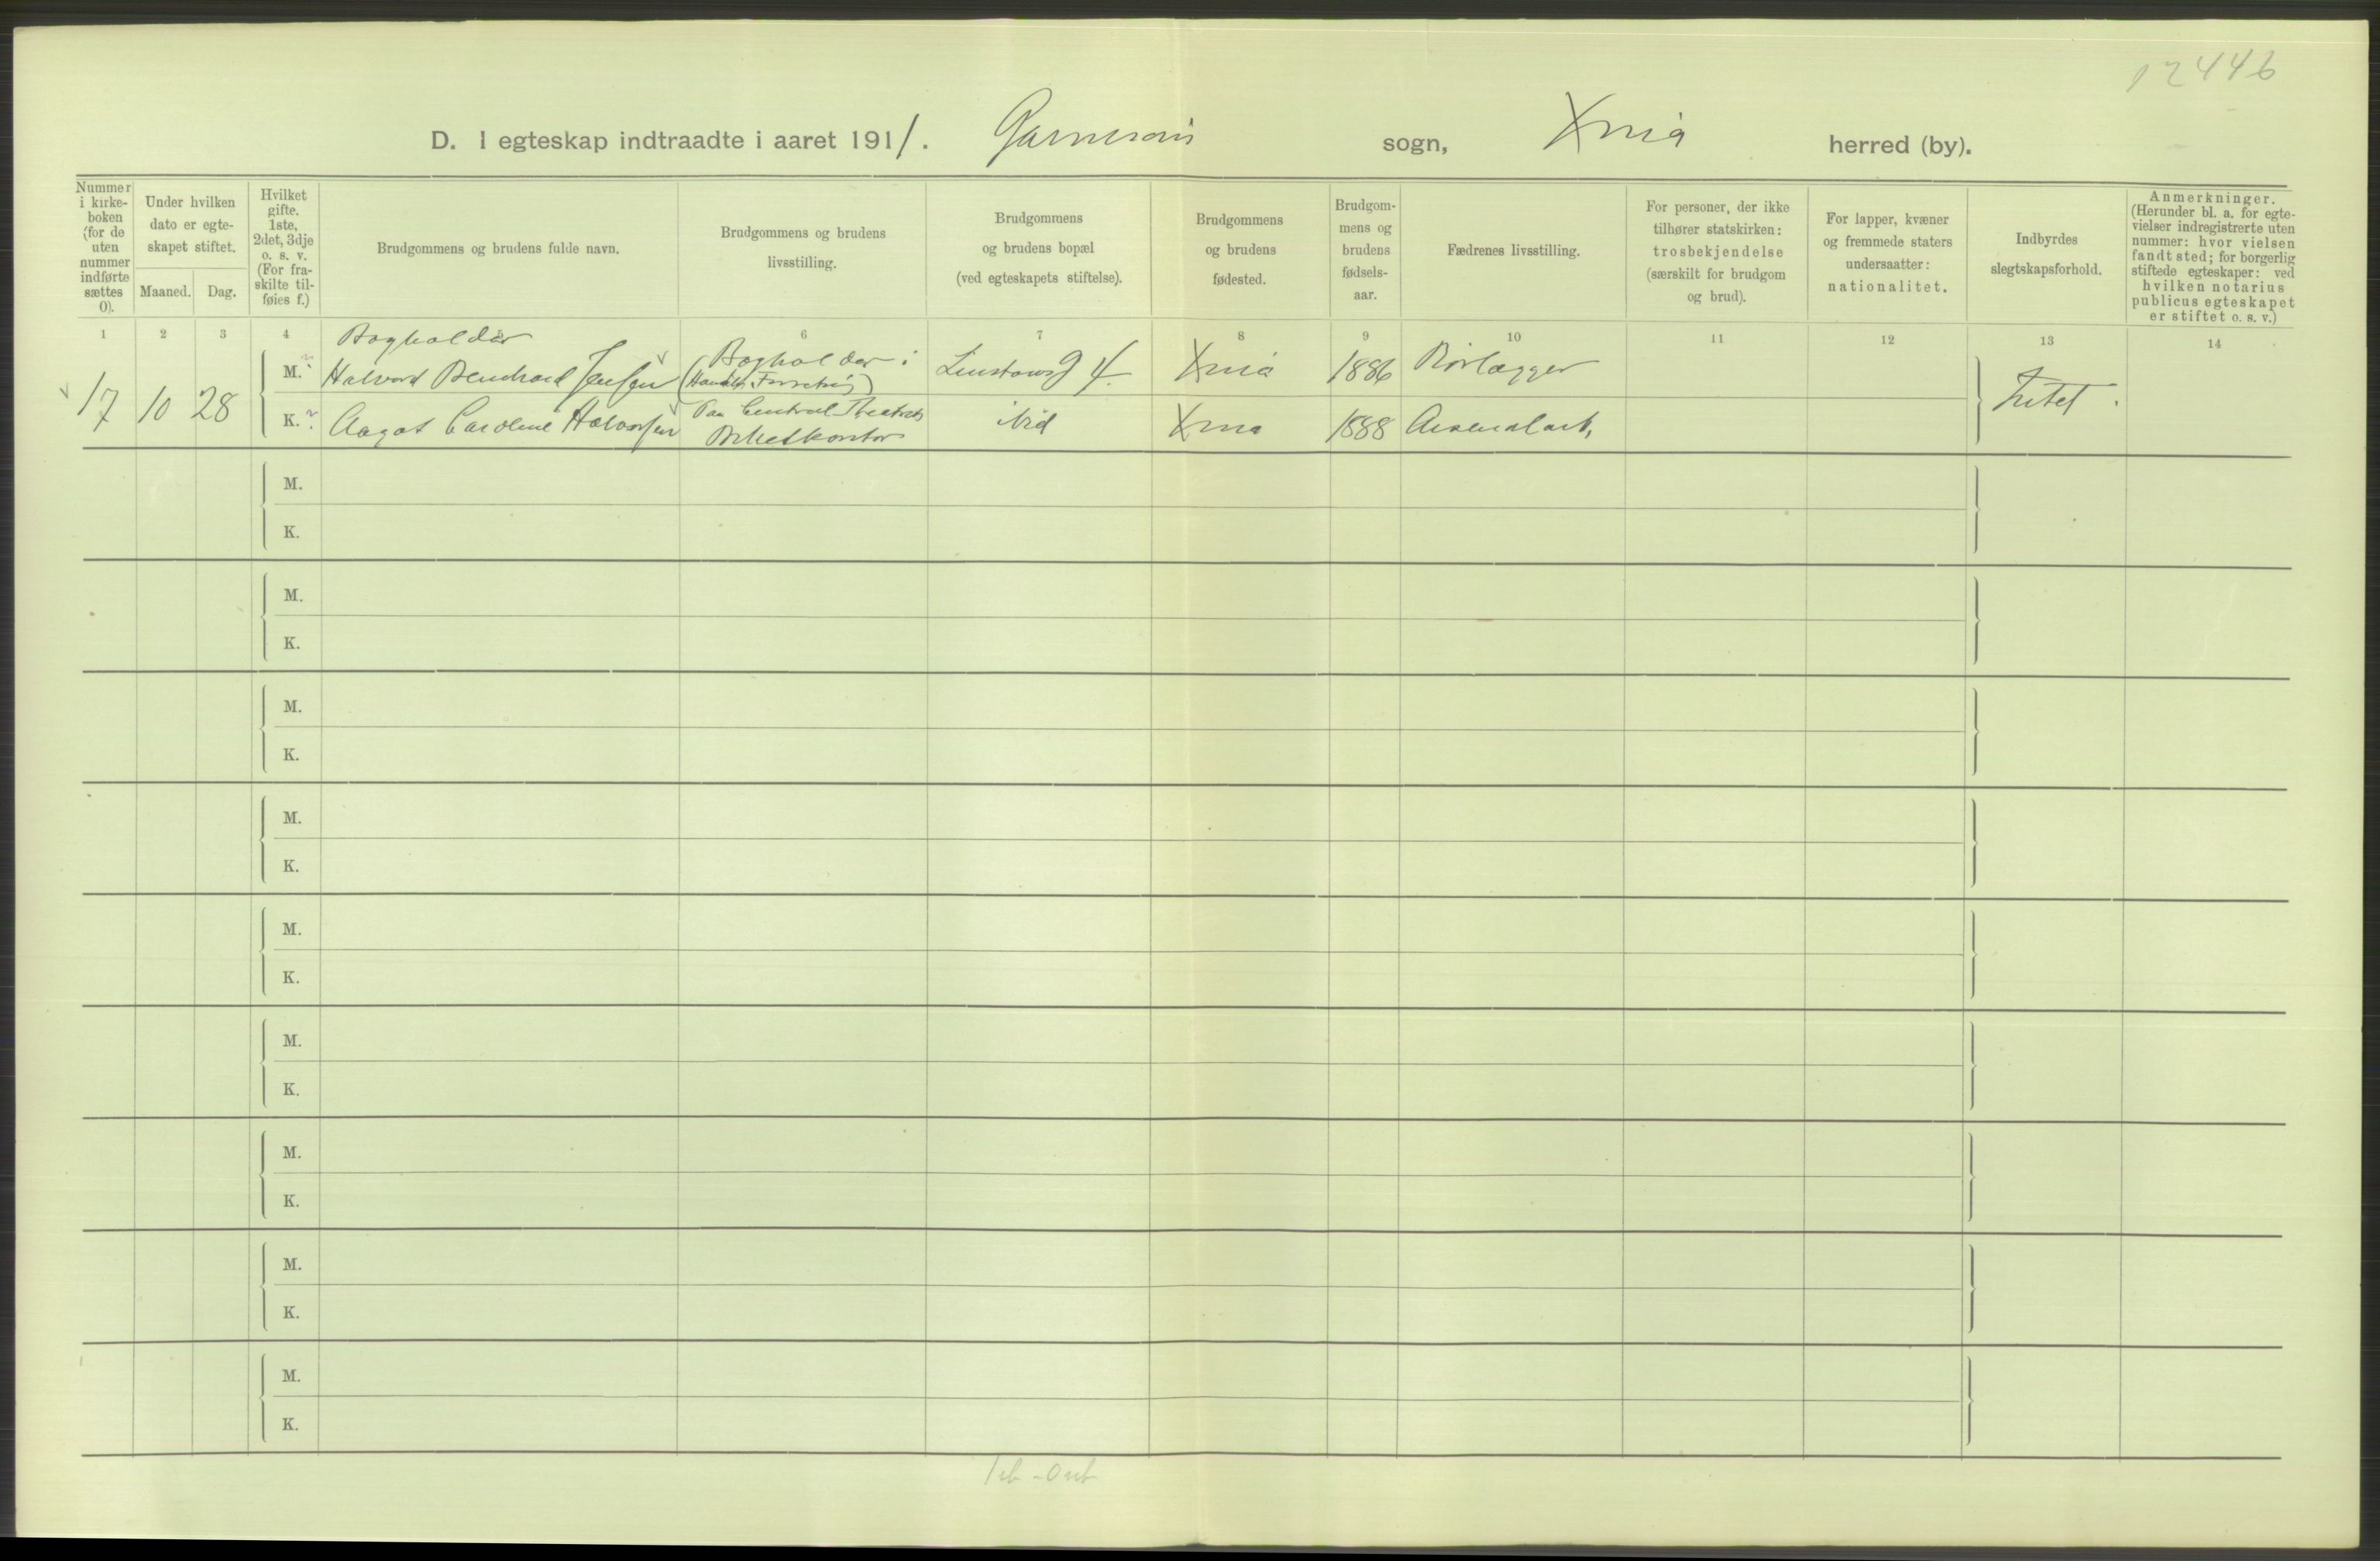 12446
D. I egteskap indtraadte i aaret 1911. Garnisons sogn, Xnia herred (by).
Nummer
i kirke-
boken
(for de
uten
nummer
indførte
sættes
0).
Under hvilken
dato er egte-
skapet stiftet.
Maaned.
Dag.
Hvilket
gifte.
1ste,
2det, 3dje
o. s. v.
(For fra-
skilte til-
føies f.)
Brudgommens og brudens fulde navn.
Brudgommens og brudens
livsstilling.
Brudgommens
og brudens bopæl
(ved egteskapets stiftelse).
Brudgommens
og brudens
fødested.
Brudgom-
mens og
brudens
fødsels-
aar.
Fædrenes livsstilling.
For personer, der ikke
tilhører statskirken:
trosbekjendelse
(særskilt for brudgom
og brud).
For lapper, kvæner
og fremmede staters
undersaatter:
nationalitet.
Indbyrdes
slegtskapsforhold.
Anmerkninger.
(Herunder bl. a. for egte-
vielser indregistrerte uten
nummer: hvor vielsen
fandt sted; for borgerlig
stiftede egteskaper: ved
hvilken notarius
publicus egteskapet
er stiftet o. s. v.)
1 2 3 4 6 7 8 9 10 11 12 13 14
17 10 28
M. ?
Bogholder
Halvord Bernhard Jensen
Bogholder i
(Handels Forretning)
Linstowsg 4.
Xnia
1886
Rørlægger
K. ?
Aagot Caroline Halvorsen
Paa Central Theatrets
Billetkontor
ibid
Xnia
1888
Arsenalarb.
Intet.
M.
K.
M.
K.
M.
K.
M.
K.
M.
K.
M.
K.
M.
K.
M.
K.
M.
K.